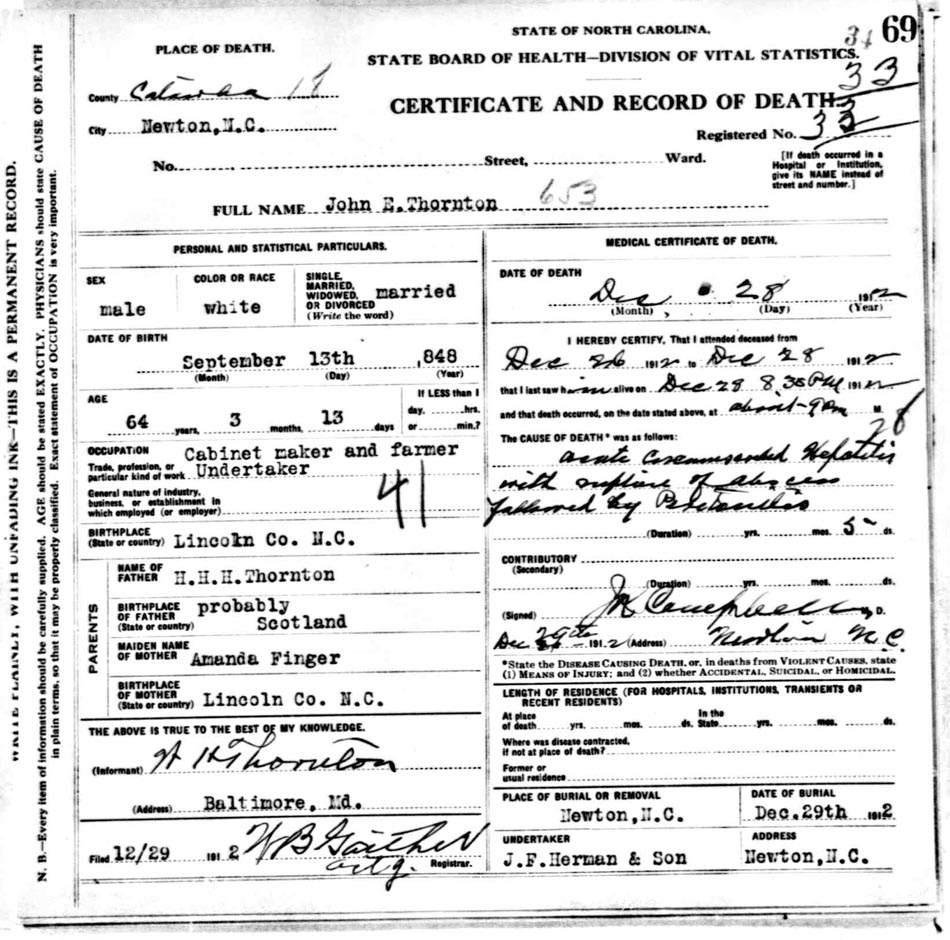 69
STATE OF NORTH CAROLINA.
PLACE OF DEATH.
STATE BOARD OF HEALTH—DIVISION OF VITAL STATISTICS.
34
33
County Catawba 18
CERTIFICATE AND RECORD OF DEATH
City Newton, N.C.
Registered No. 33
No. Street, Ward.
[If death occurred in a Hospital or Institution, give its NAME instead of street and number.]
FULL NAME John E. Thornton 653
PERSONAL AND STATISTICAL PARTICULARS.
SEX
male
COLOR OR RACE
white
SINGLE, MARRIED, WIDOWED, OR DIVORCED
(Write the word)
married
DATE OF BIRTH
September 13th ,848
(Month) (Day) (Year)
AGE
64 years, 3 months, 13 days
If LESS than 1 day, hrs. or min.?
OCCUPATION
Trade, profession, or particular kind of work
Cabinet maker and farmer
Undertaker
General nature of industry, business, or establishment in which employed (or employer)
41
BIRTHPLACE
(State or country) Lincoln Co. N.C.
PARENTS
NAME OF FATHER H.H.H. Thornton
BIRTHPLACE OF FATHER
(State or country)
probably
Scotland
MAIDEN NAME OF MOTHER Amanda Finger
BIRTHPLACE OF MOTHER
(State or country) Lincoln Co. N.C.
THE ABOVE IS TRUE TO THE BEST OF MY KNOWLEDGE.
(Informant) H Thornton
(Address) Baltimore, Md.
Filed 12/29 1912 Registrar.
MEDICAL CERTIFICATE OF DEATH.
DATE OF DEATH
Dec 28 1912
(Month) (Day) (Year)
I HEREBY CERTIFY, That I attended deceased from
Dec 26 1912 to Dec 28 1912
that I last saw him alive on Dec 28 8.30 PM 1912
and that death occurred, on the date stated above, at about 9 pm M.
The CAUSE OF DEATH* was as follows:
acute circumscribed Hepatitis
with rupture of abscess
followed by Peritonitis
(Duration) yrs. mos. 5 ds.
CONTRIBUTORY
(Secondary)
(Duration) yrs. mos. ds.
(Signed) Campbell M. D.
Dec 29th 1912 (Address) Newton N.C.
*State the DISEASE CAUSING DEATH, or, in deaths from VIOLENT CAUSES, state
(1) MEANS OF INJURY; and (2) whether ACCIDENTAL, SUICIDAL, OR HOMICIDAL.
LENGTH OF RESIDENCE (FOR HOSPITALS, INSTITUTIONS, TRANSIENTS OR RECENT RESIDENTS)
At place of death yrs. mos. ds. In the State yrs. mos. ds.
Where was disease contracted, if not at place of death?
Former or usual residence
PLACE OF BURIAL OR REMOVAL
Newton, N.C.
DATE OF BURIAL
Dec. 29th 1912
UNDERTAKER
J.F. Herman & Son
ADDRESS
Newton, N.C.
WRITE PLAINLY, WITH UNFADING INK—THIS IS A PERMANENT RECORD.
N. B.—Every item of information should be carefully supplied. AGE should be stated EXACTLY. PHYSICIANS should state CAUSE OF DEATH
in plain terms, so that it may be properly classified. Exact statement of OCCUPATION is very important.